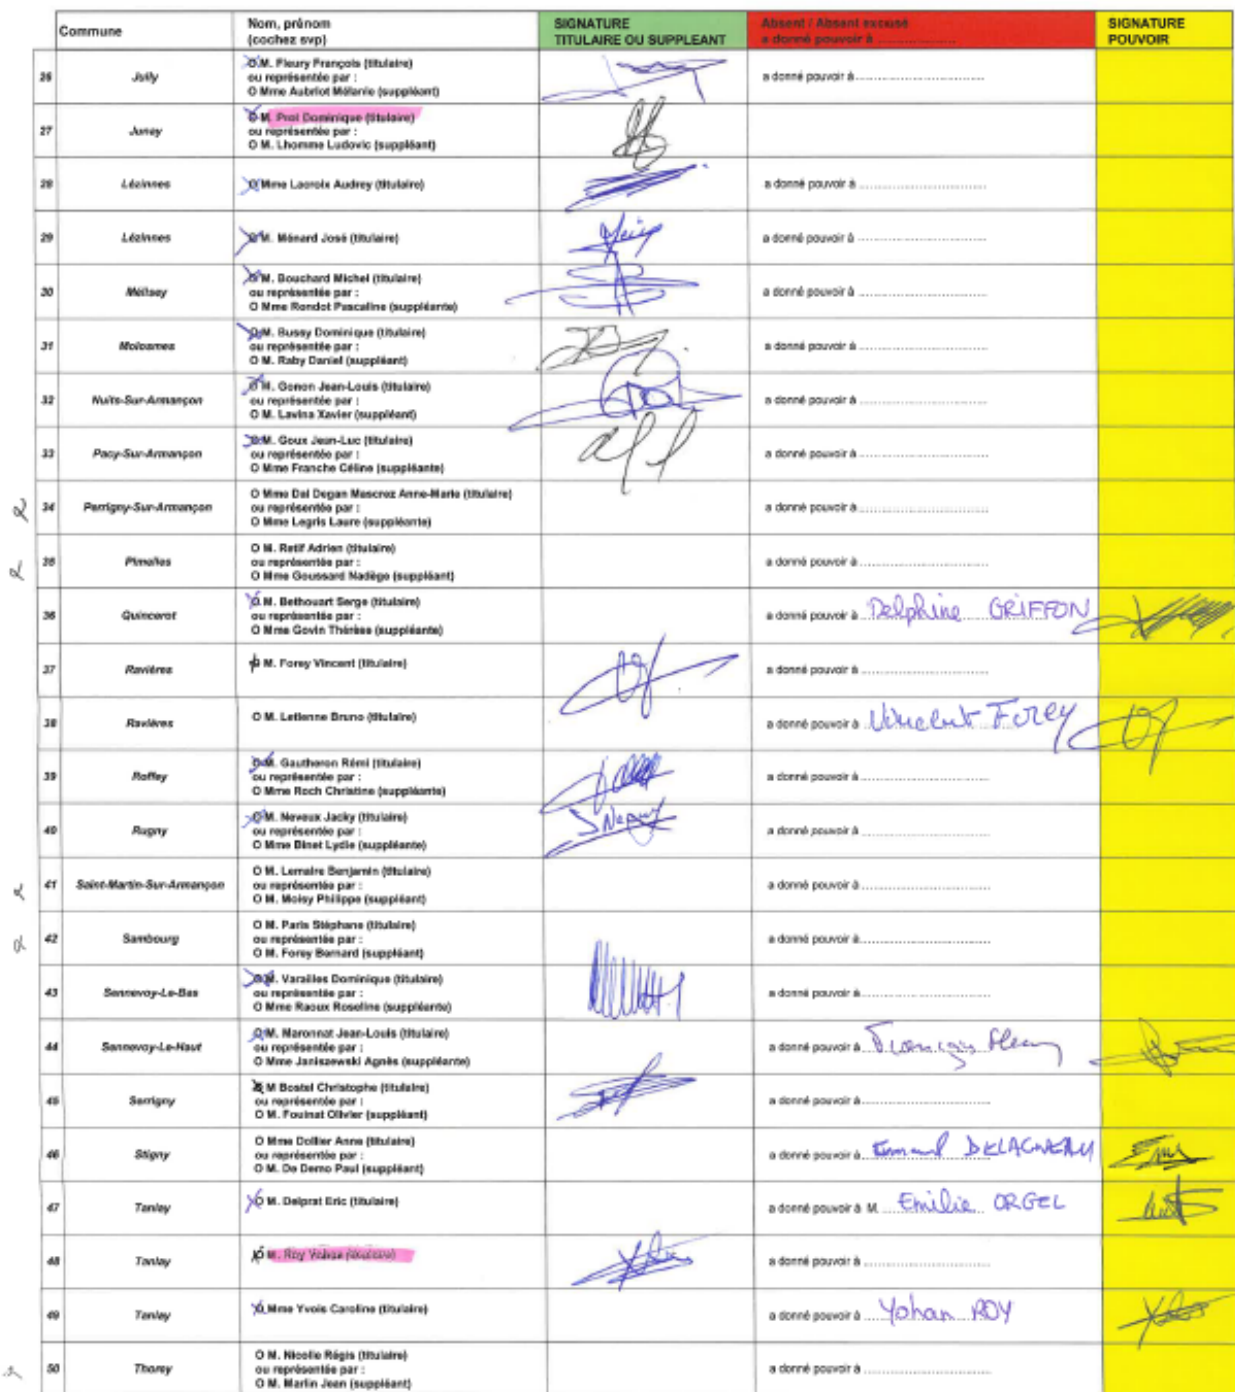 Commune
Nom, prénom
(cochez svp)
SIGNATURE
TITULAIRE OU SUPPLEANT
Absent / Absent excusé
a donné pouvoir à ....................
SIGNATURE
POUVOIR
26 Jully
O M. Fleury François (titulaire)
ou représentée par :
O Mme Aubriot Mélanie (suppléant)
a donné pouvoir à ....................
27 Junay
O M. Prot Dominique (titulaire)
ou représentée par :
O M. Lhomme Ludovic (suppléant)
28 Lézinnes
O Mme Lacroix Audrey (titulaire)
a donné pouvoir à ....................
29 Lézinnes
O M. Ménard José (titulaire)
a donné pouvoir à ....................
30 Mélisey
O M. Bouchard Michel (titulaire)
ou représentée par :
O Mme Rondot Pascaline (suppléante)
a donné pouvoir à ....................
31 Molosmes
O M. Bussy Dominique (titulaire)
ou représentée par :
O M. Raby Daniel (suppléant)
a donné pouvoir à ....................
32 Nuits-Sur-Armançon
O M. Gonon Jean-Louis (titulaire)
ou représentée par :
O M. Lavina Xavier (suppléant)
a donné pouvoir à ....................
33 Pacy-Sur-Armançon
O M. Goux Jean-Luc (titulaire)
ou représentée par :
O Mme Franche Céline (suppléante)
a donné pouvoir à ....................
34 Perrigny-Sur-Armançon
O Mme Dal Degan Mascrez Anne-Marie (titulaire)
ou représentée par :
O Mme Legris Laure (suppléante)
a donné pouvoir à ....................
35 Pimelles
O M. Retif Adrien (titulaire)
ou représentée par :
O Mme Goussard Nadège (suppléant)
a donné pouvoir à ....................
36 Quincerot
O M. Bethouart Serge (titulaire)
ou représentée par :
O Mme Govin Thérèse (suppléante)
a donné pouvoir à Delphine GRIFFON
37 Ravières
O M. Forey Vincent (titulaire)
a donné pouvoir à ....................
38 Ravières
O M. Letienne Bruno (titulaire)
a donné pouvoir à Vincent Forey
39 Roffey
O M. Gautheron Rémi (titulaire)
ou représentée par :
O Mme Roch Christine (suppléante)
a donné pouvoir à ....................
40 Rugny
O M. Neveux Jacky (titulaire)
ou représentée par :
O Mme Binet Lydie (suppléante)
a donné pouvoir à ....................
41 Saint-Martin-Sur-Armançon
O M. Lemaire Benjamin (titulaire)
ou représentée par :
O M. Moisy Philippe (suppléant)
a donné pouvoir à ....................
42 Sambourg
O M. Paris Stéphane (titulaire)
ou représentée par :
O M. Forey Bernard (suppléant)
a donné pouvoir à ....................
43 Sennevoy-Le-Bas
O M. Varailles Dominique (titulaire)
ou représentée par :
O Mme Raoux Roseline (suppléante)
a donné pouvoir à ....................
44 Sennevoy-Le-Haut
O M. Maronnat Jean-Louis (titulaire)
ou représentée par :
O Mme Janiszewski Agnès (suppléante)
a donné pouvoir à François Fleury
45 Serrigny
O M Bostel Christophe (titulaire)
ou représentée par :
O M. Fouinat Olivier (suppléant)
a donné pouvoir à ....................
46 Stigny
O Mme Dollier Anne (titulaire)
ou représentée par :
O M. De Demo Paul (suppléant)
a donné pouvoir à DELAGNEAU
47 Tanlay
O M. Delprat Eric (titulaire)
a donné pouvoir à M. Emilie ORGEL
48 Tanlay
O M. Roy (titulaire)
a donné pouvoir à ....................
49 Tanlay
O Mme Yvois Caroline (titulaire)
a donné pouvoir à Yohan ROY
50 Thorey
O M. Nicolle Régis (titulaire)
ou représentée par :
O M. Martin Jean (suppléant)
a donné pouvoir à ....................